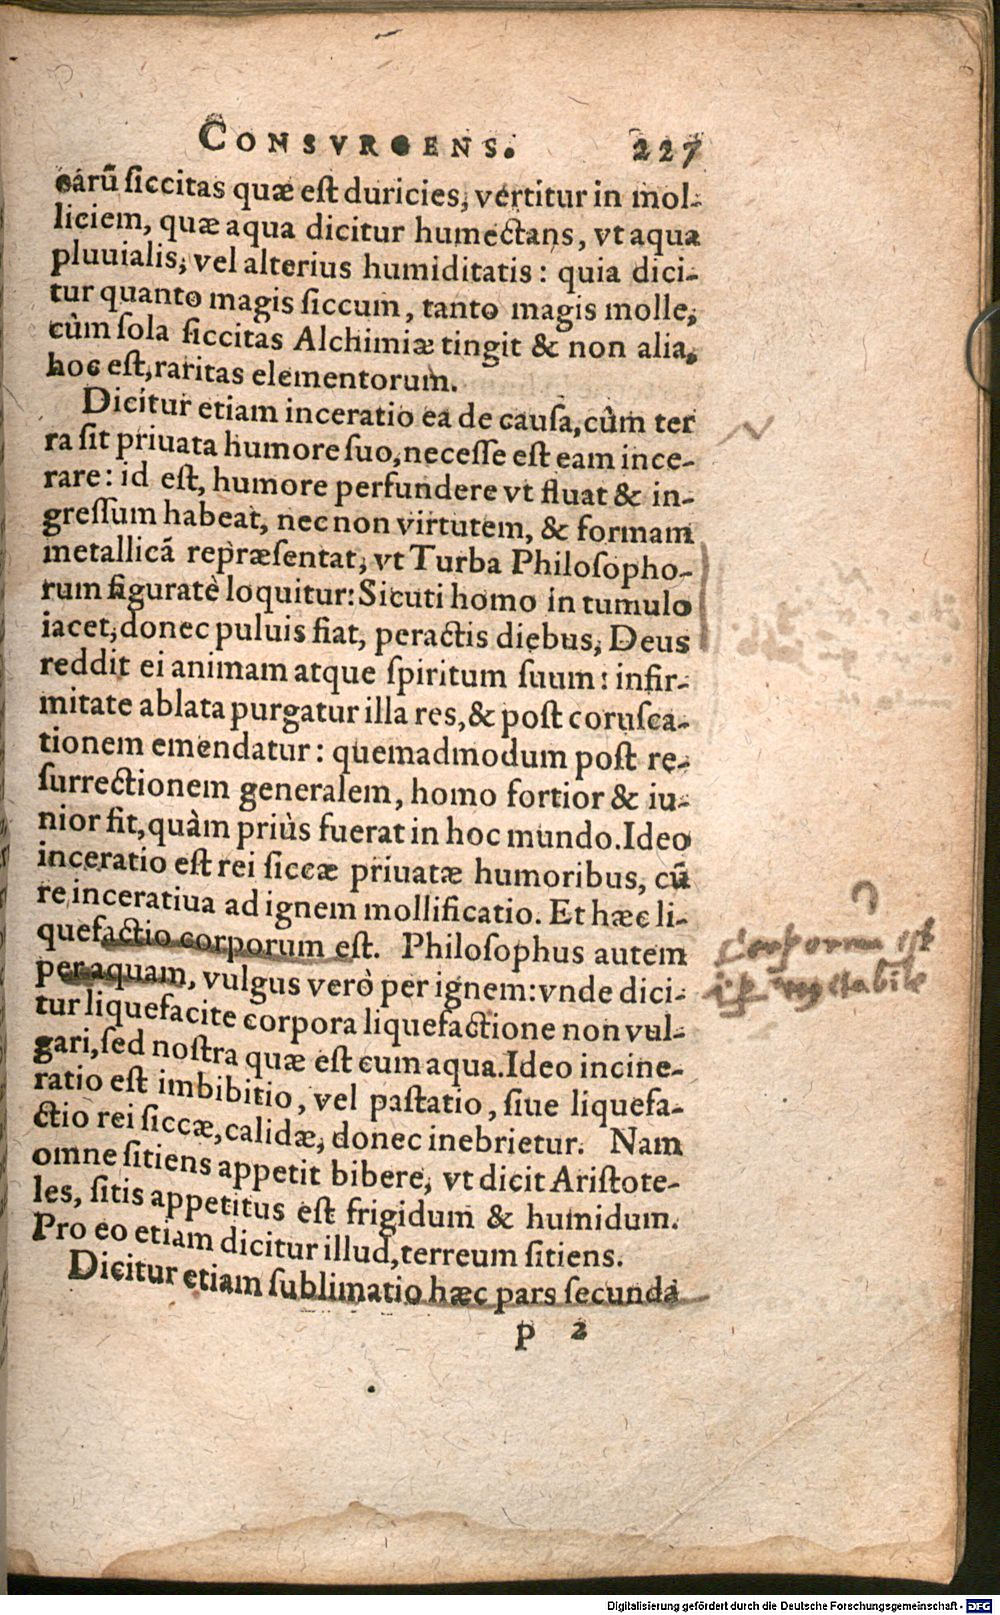 CONSVRGENS. 227
earũ ſiccitas quæ eſt duricies, vertitur in mol-
liciem, quæ aqua dicitur humectans, vt aqua
pluuialis, vel alterius humiditatis: quia dici-
tur quanto magis ſiccum, tanto magis molle,
cùm ſola ſiccitas Alchimiæ tingit & non alia,
hoc eſt, raritas elementorum.
Dicitur etiam inceratio ea de cauſa, cûm ter
ra ſit priuata humore ſuo, neceſſe eſt eam ince-
rare: id eſt, humore perfundere vt fluat & in-
greſſum habeat, nec non virtutem, & formam
metallicã repræſentat, vt Turba Philoſopho-
rum figuratè loquitur: Sicuti homo in tumulo
iacet, donec puluis fiat, peractis diebus, Deus
reddit ei animam atque ſpiritum ſuum: infir-
mitate ablata purgatur illa res, & poſt coruſca-
tionem emendatur: quemadmodum poſt re-
ſurrectionem generalem, homo fortior & iu-
nior fit, quàm priùs fuerat in hoc mundo. Ideo
inceratio eſt rei ſiccæ priuatæ humoribus, cũ
re inceratiua ad ignem mollificatio. Et hæc li-
quefactio corporum eſt. Philoſophus autem
per aquam, vulgus verò per ignem: vnde dici-
tur liquefacite corpora liquefactione non vul-
gari, ſed noſtra quæ eſt cum aqua. Ideo incine-
ratio eſt imbibitio, vel paſtatio, ſiue liquefa-
ctio rei ſiccæ, calidæ, donec inebrietur. Nam
omne ſitiens appetit bibere, vt dicit Ariſtote-
les, ſitis appetitus eſt frigidum & humidum.
Pro eo etiam dicitur illud, terreum ſitiens.
Dicitur etiam ſublimatio hæc pars ſecunda
P 2
est
Digitalisierung gefördert durch die Deutsche Forschungsgemeinschaft - DFG